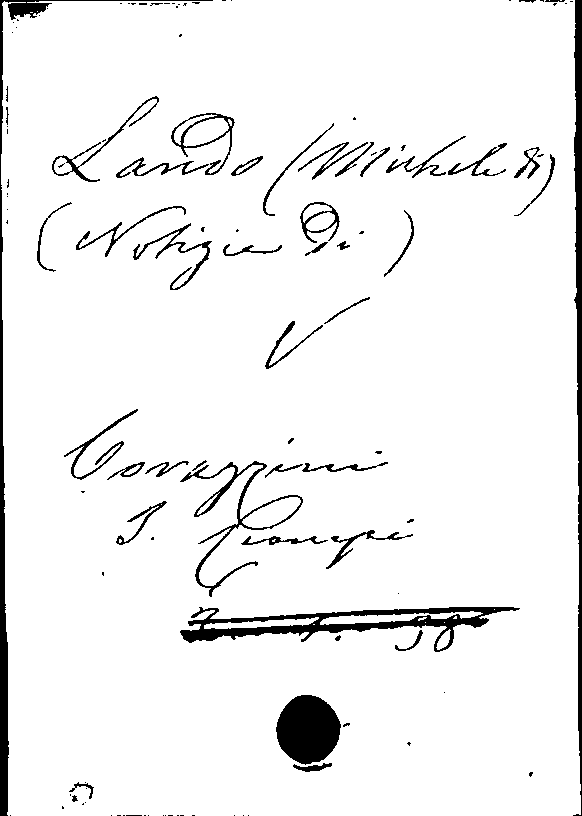 Lando (Michele di)
(Notizie di)
V
Corazzini
I. Ciompi
7. 1. 98